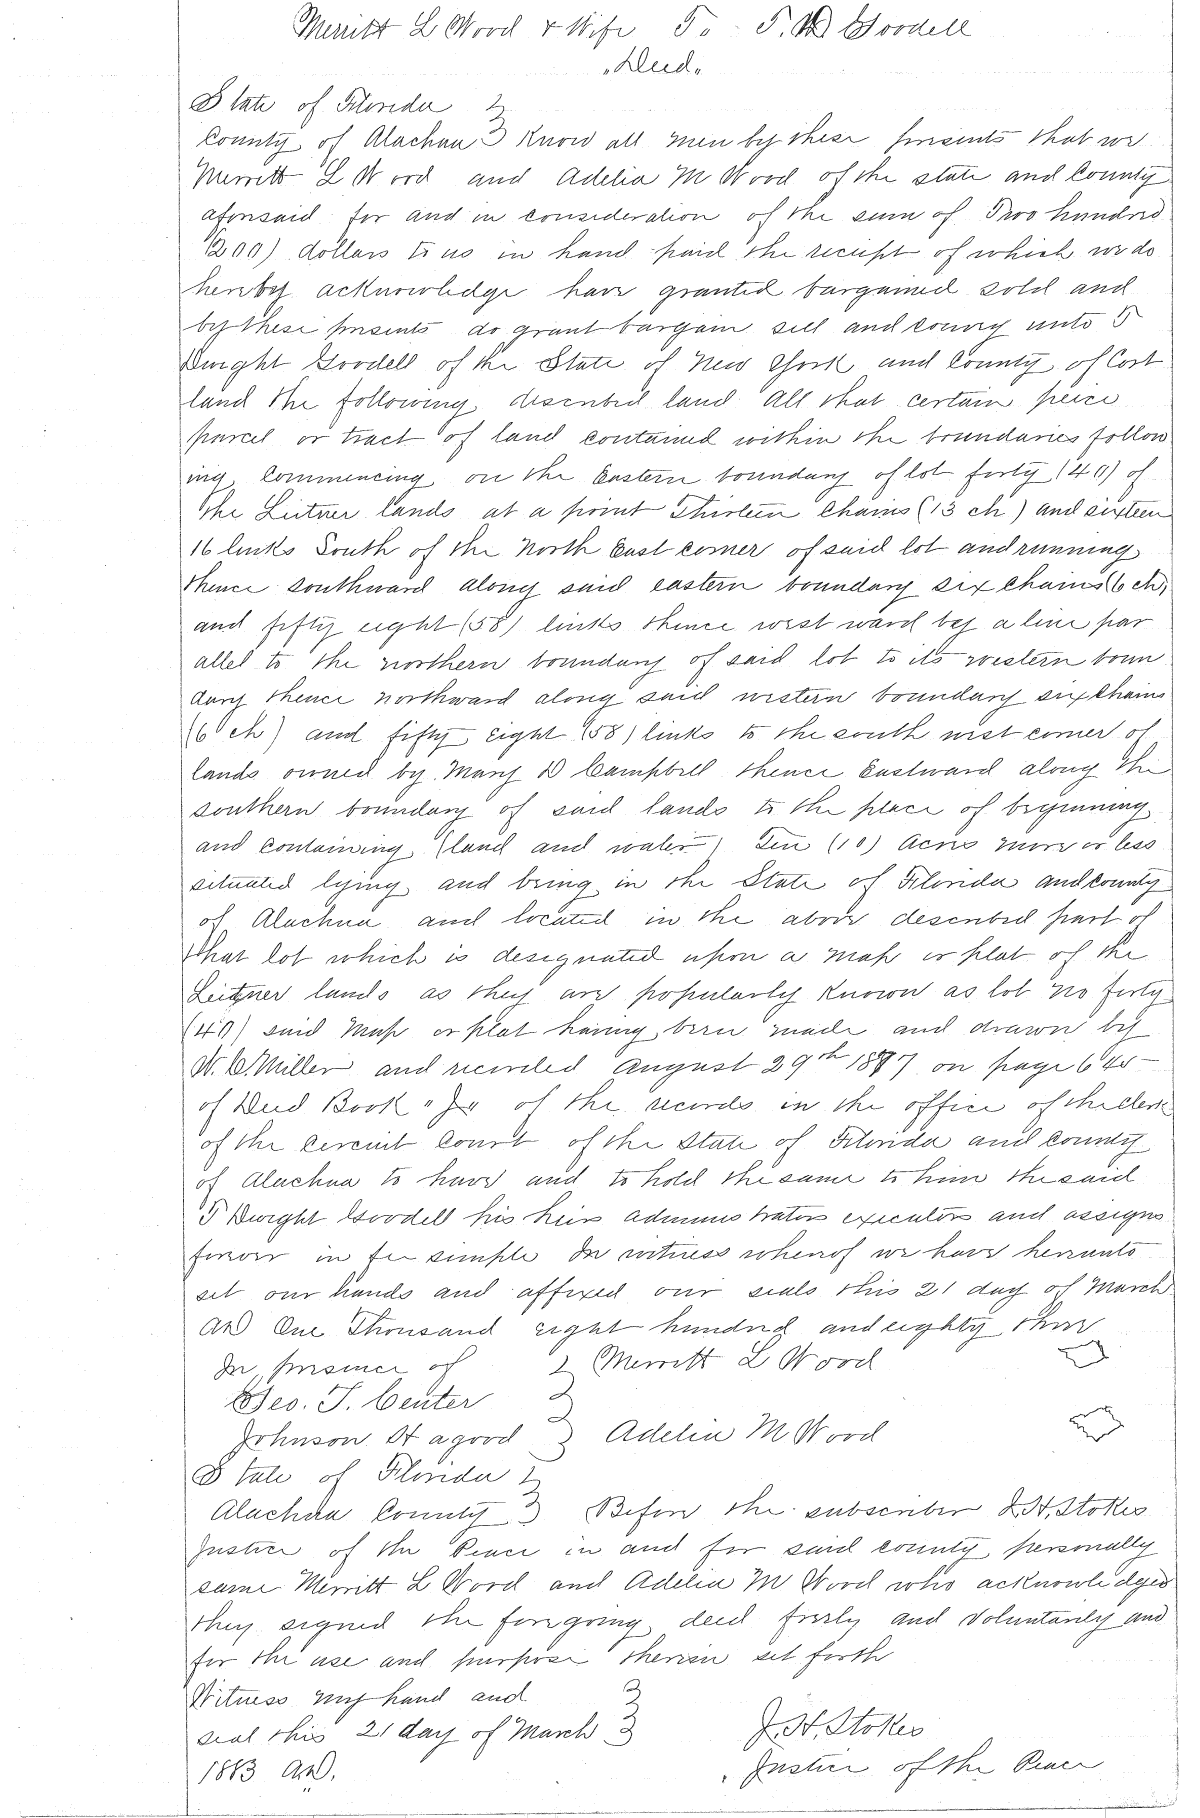 Merritt L Wood & Wife To T. D Goodell
"Deed"
State of Florida
County of Alachua Know all men by these presents that we
Merritt L Wood and Adelia M Wood of the state and County
aforesaid for and in consideration of the sum of Two hundred
(200) dollars to us in hand paid the receipt of which we do
hereby acknowledge have granted bargained sold and
by these presents do grant bargain sell and convey unto T
Dwight Goodell of the State of New York and County of Cort
land the following described land All that certain peice
parcel or tract of land contained within the boundaries follow
ing Commencing on the Eastern boundary of lot forty (40) of
the Leitner lands at a point Thirteen Chains (13 ch) and sixteen
16 links South of the North East corner of said lot and running
thence southward along said eastern boundary six chains (6 ch)
and fifty eight (58) links thence west ward by a line par
allel to the northern boundary of said lot to its western boun
dary thence northward along said western boundary six chains
(6 ch) and fifty eight (58) links to the south west corner of
lands owned by Mary D Campbell thence Eastward along the
southern boundary of said lands to the place of beginning
and containing (land and water) Ten (10) Acres more or less
situated lying and being in the State of Florida and county
of Alachua and located in the above described part of
that lot which is designated upon a map or plat of the
Leitner lands as they are popularly known as lot no forty
(40) said map or plat having been made and drawn by
W. C. Miller and recorded August 29th 1877 on page 645
of Deed Book "J" of the records in the office of the clerk
of the circuit court of the State of Florida and county
of Alachua to have and to hold the same to him the said
T Dwight Goodell his heirs administrators executors and assigns
forever in fee simple In witness whereof we have hereunto
set our hands and affixed our seals this 21 day of March
AD One Thousand eight hundred and eighty three
In presence of Merritt L Wood
Geo. T. Center
Johnson Hagood Adelia M Wood
State of Florida
Alachua County Before the subscriber J. H. Stokes
Justice of the Peace in and for said county personally
came Merritt L Wood and Adelia M Wood who acknowledges
they signed the foregoing deed freely and Voluntarily and
for the use and purpose therein set forth
Witness my hand and
seal this 21 day of March J. H. Stokes
1883 AD. Justice of the Peace